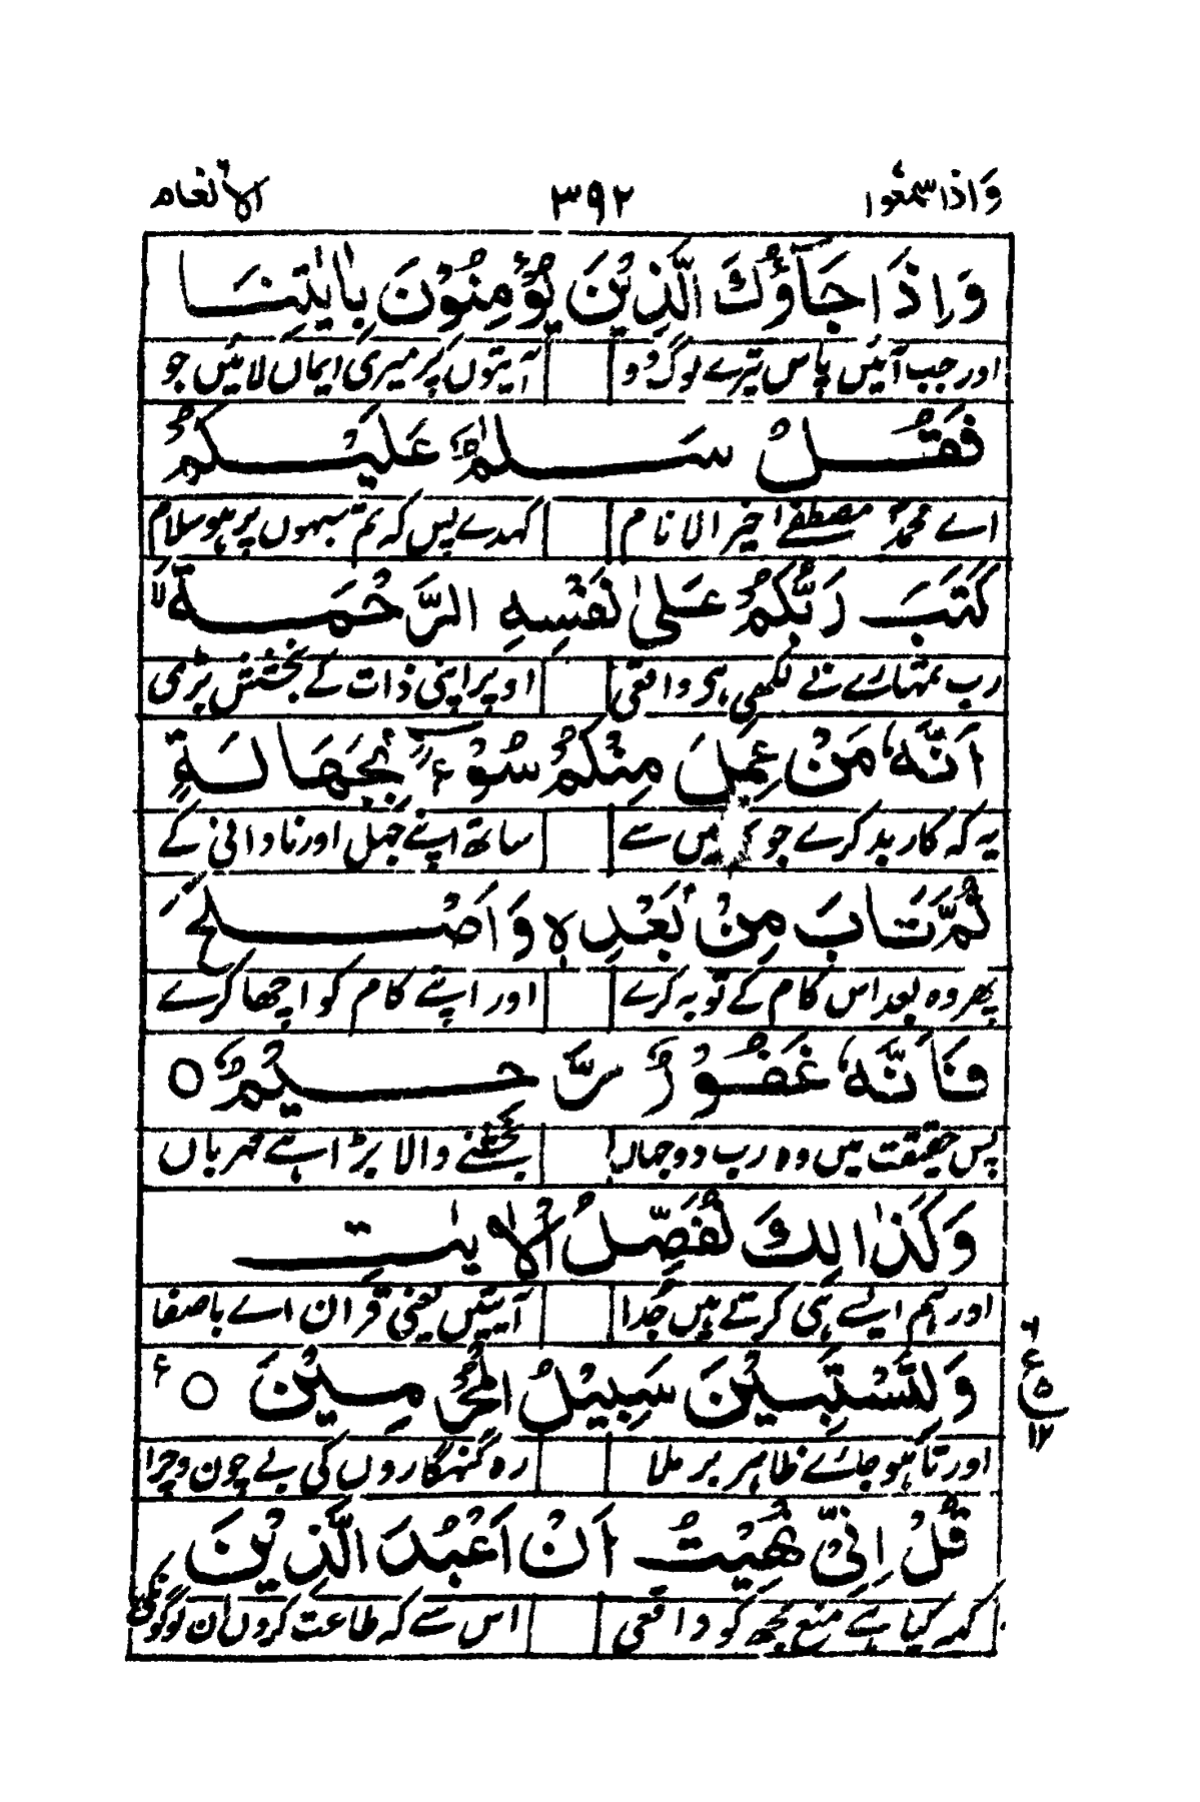 واذا سمعوا ۳۹۲ الانعام
وَاِذَا جَآؤُكَ الَّذِيْنَ يُؤْمِنُوْنَ بِاٰيٰتِنَا
اور جب آئیں پاس تیرے لوگ وو آیتوں پر میری ایماں لائیں جو
فَقُلْ سَلٰمٌ عَلَيْكُمْ
اے محمدؐ مصطفےٰ خیر الانام کہدے پس کہ تم سبہوں پر ہو سلام
كَتَبَ رَبُّكُمْ عَلىٰ نَفْسِهِ الرَّحْمَةَ ۙ
رب تمہارے نے لکھی ہی واقعی اوپر اپنی ذات کے بخشش بڑی
اَنَّهٗ مَنْ عَمِلَ مِنْكُمْ سُوْٓءًۢ بِجَهَالَةٍ
یہ کہ کار بد کرے جو تم میں سے ساتھ اپنے جہل اور نادانی کے
ثُمَّ تَابَ مِنْ بَعْدِهٖ وَاَصْلَحَ
پھر وہ بعد اس کام کے توبہ کرے اور اپنے کام کو اچھا کرے
فَاَنَّهٗ غَفُوْرٌ رَّحِيْمٌ ○
پس حقیقت میں وہ رب دو جہاں بخشنے والا بڑا ہے مہرباں
وَكَذٰالِكَ نُفَصِّلُ الْاٰيٰتِ
اور ہم ایسے ہی کرتے ہیں جُدا آیتیں یعنی قرآن اے باصفا
وَلِتَسْتَبِيْنَ سَبِيْلُ الْمُجْرِمِيْنَ ○ ع
۶ ع ۵ ۱۲
اور تا ہو جائے ظاہر بر ملا رہ گنہگاروں کی بے چون و چرا
قُلْ اِنِّيْ نُهِيْتُ اَنْ اَعْبُدَ الَّذِيْنَ
کہہ کیا ہے منع مجھ کو واقعی اس سے کہ طاعت کروں ان لوگو نکی